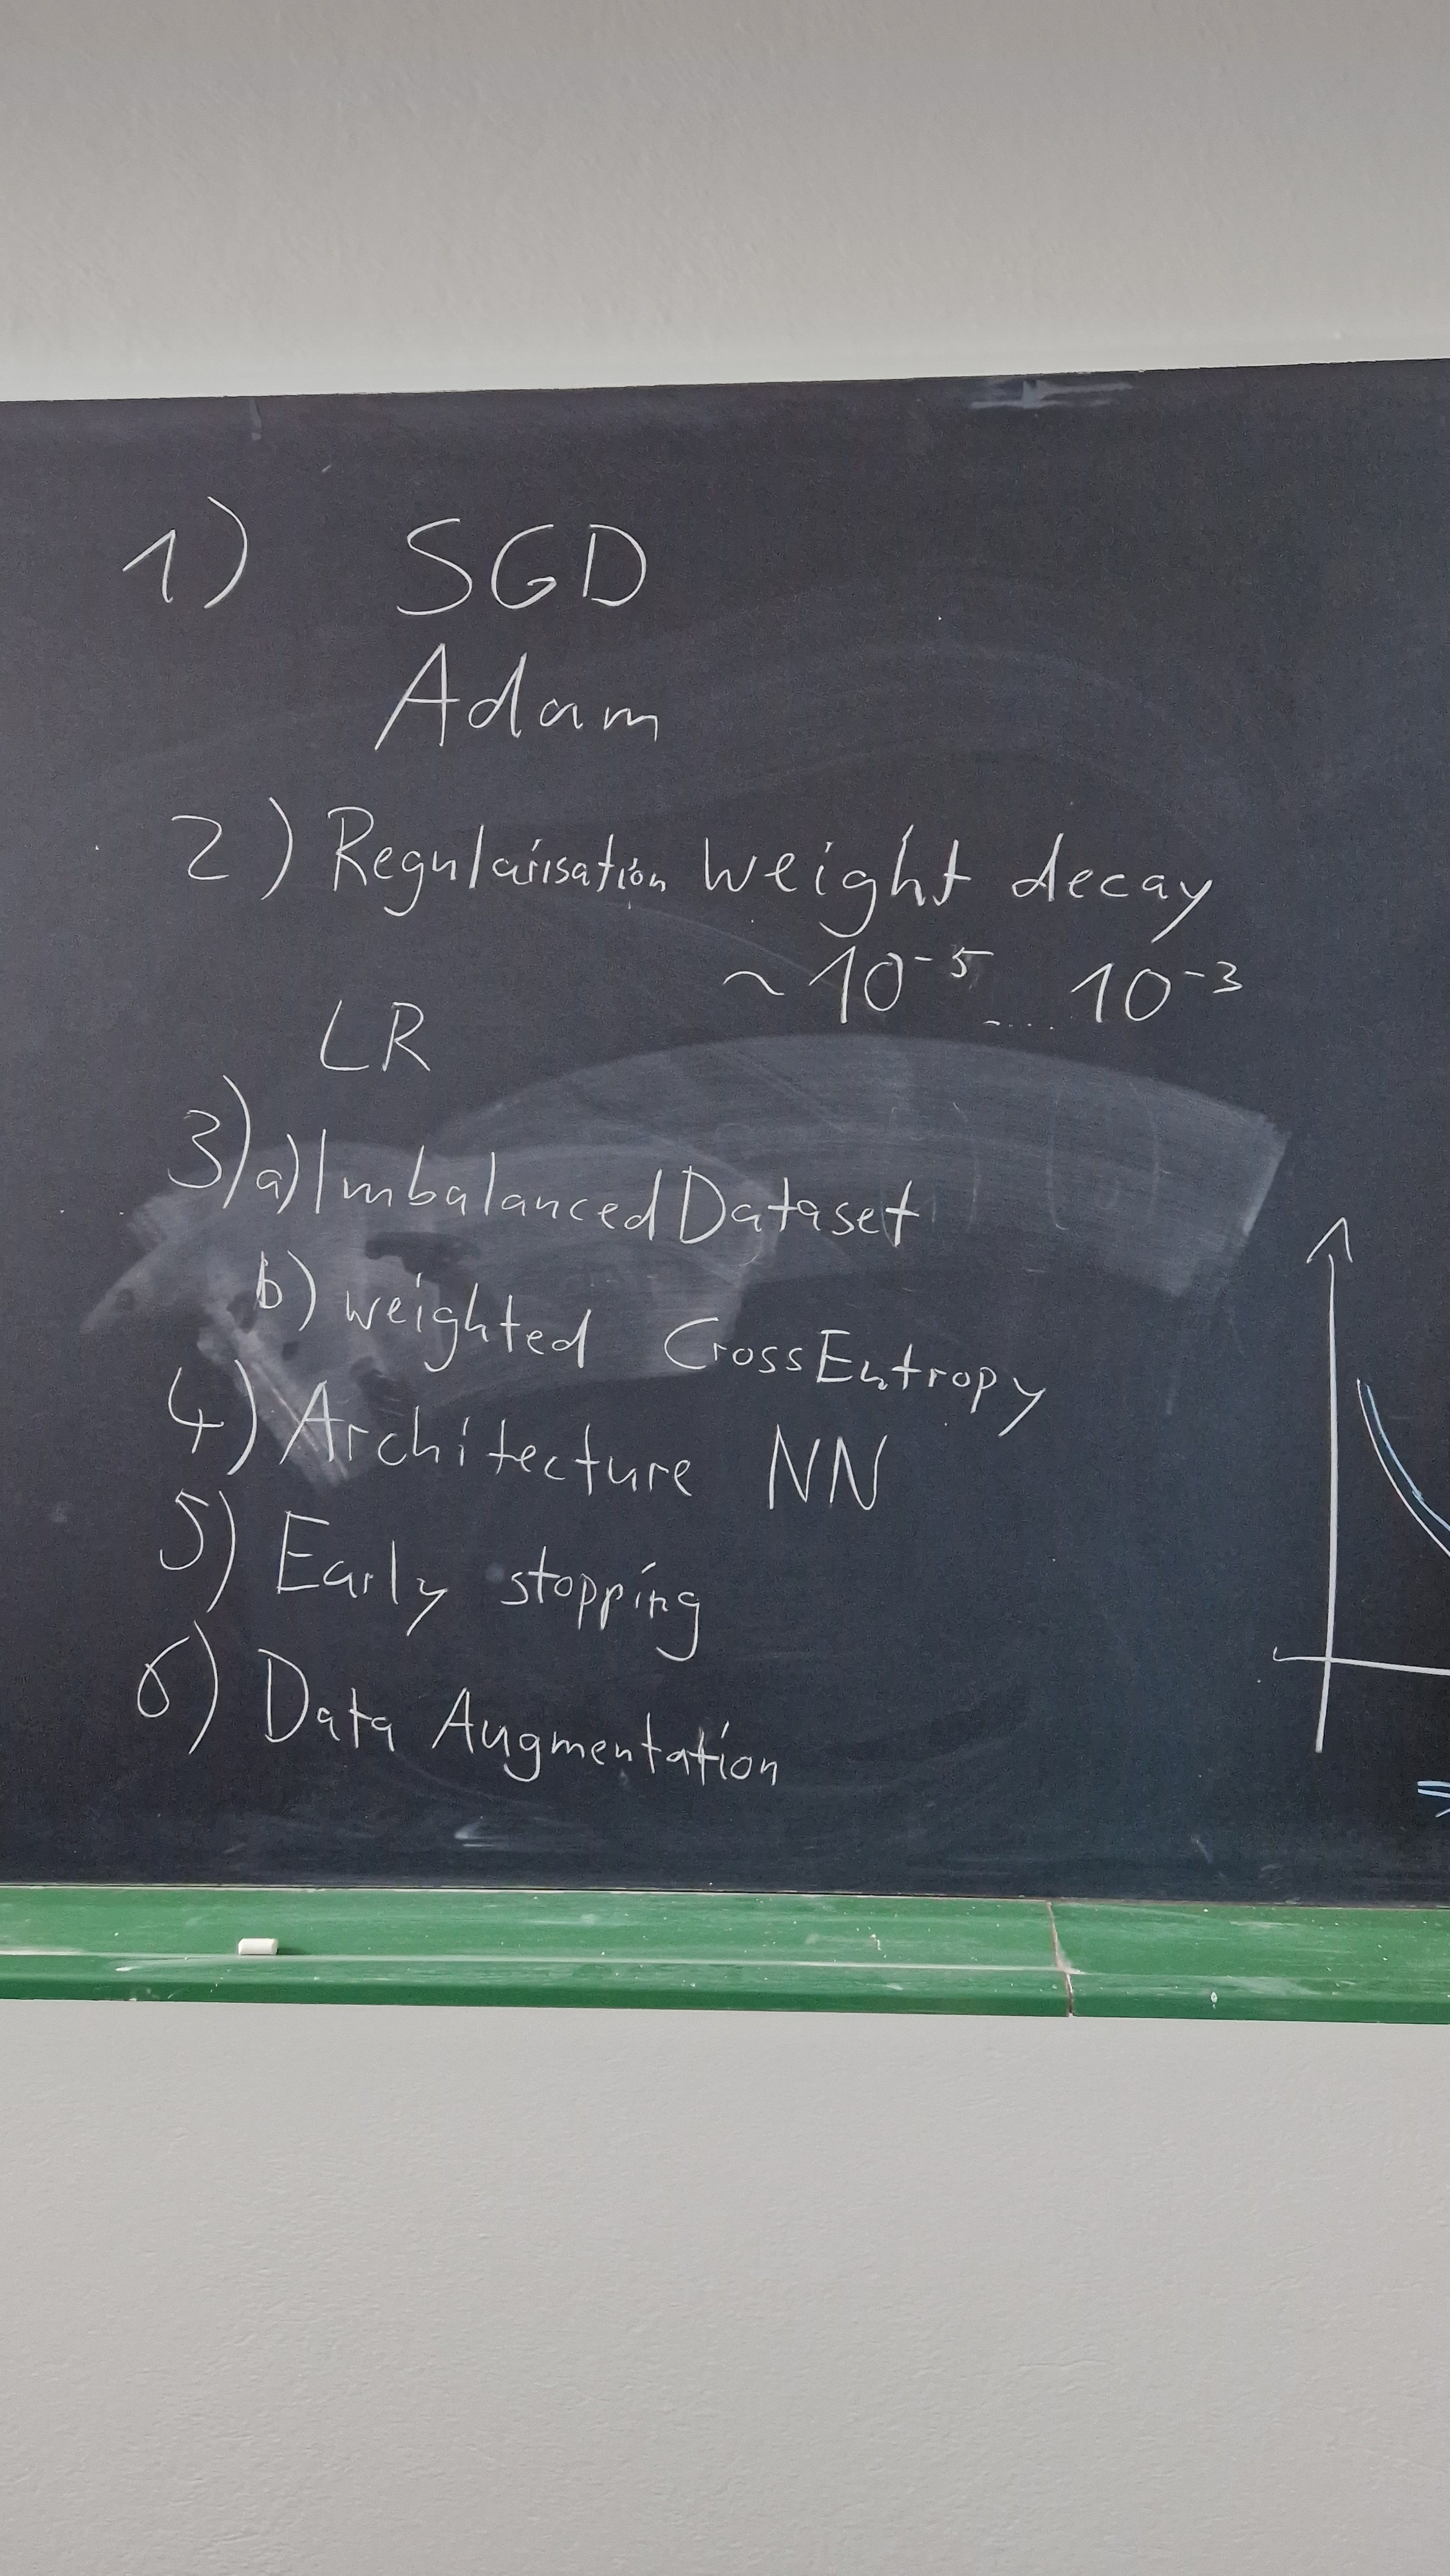 1) SGD
Adam
2) Regularisation weight decay
~ 10⁻⁵ .... 10⁻³
LR
3) a) Imbalanced Dataset
b) weighted CrossEntropy
4) Architecture NN
5) Early stopping
6) Data Augmentation